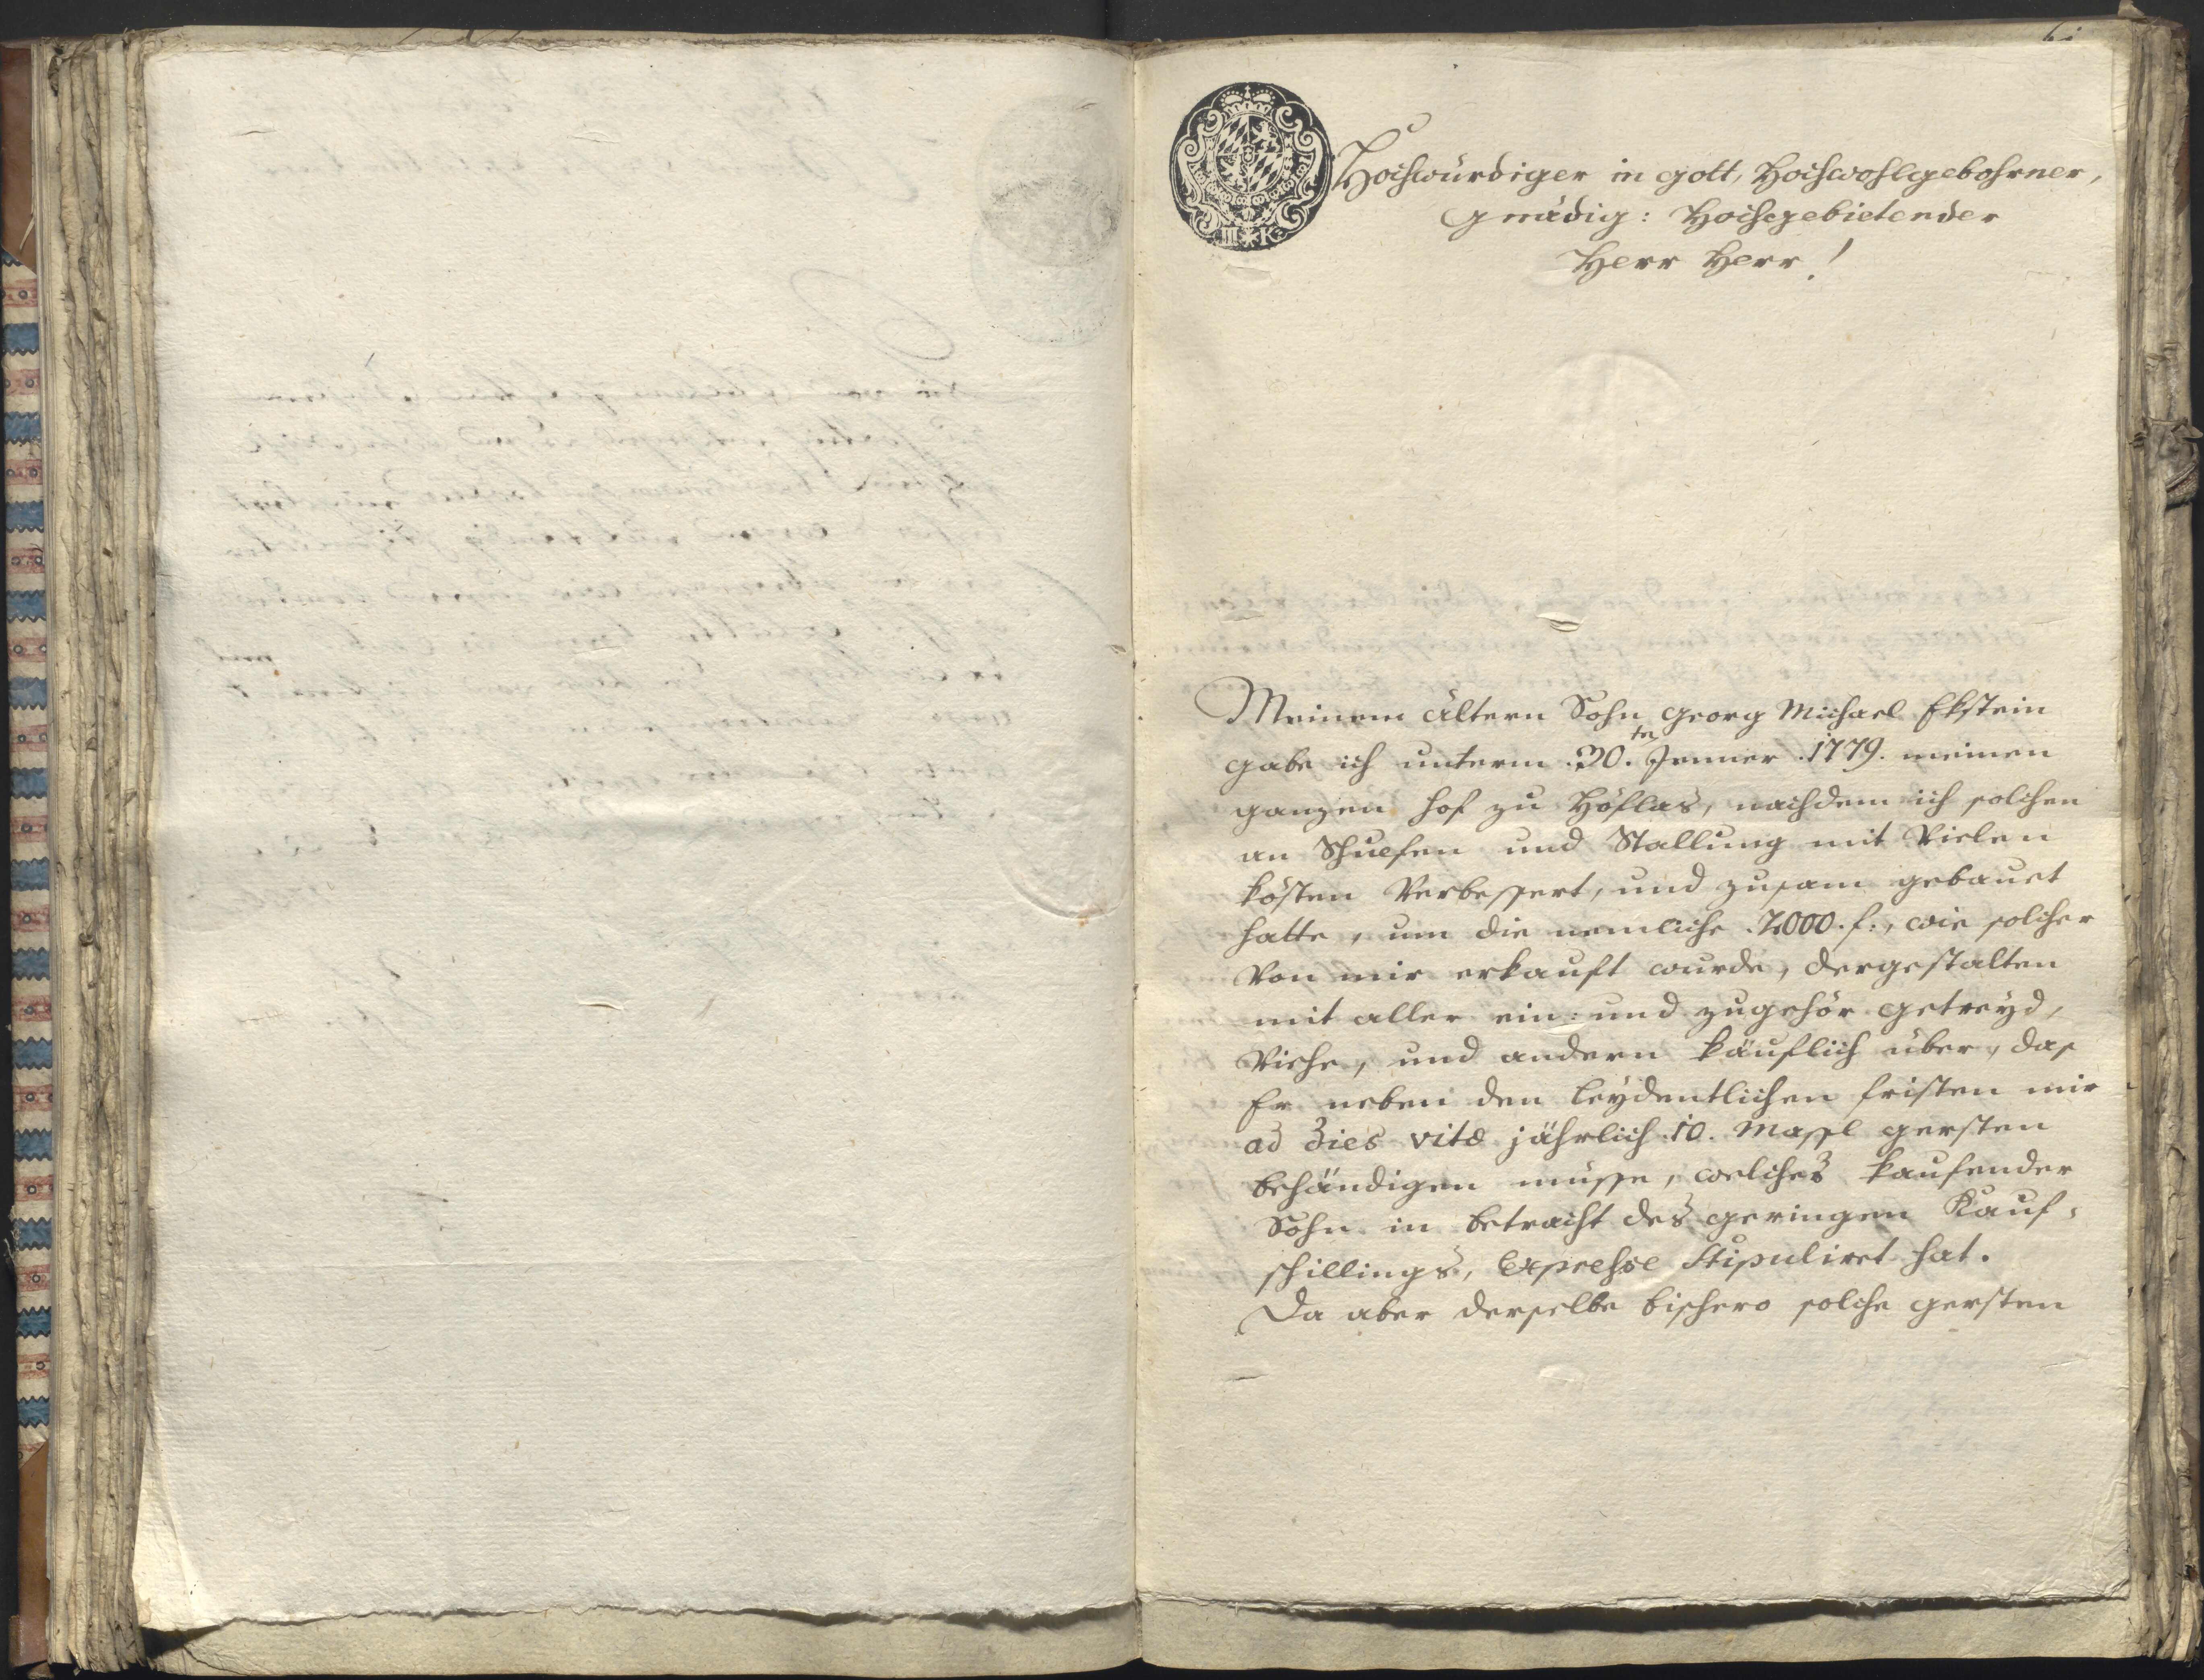 Hochwürdiger in gott, Hochwohlgebohrner,
gnädig: Hochgebietender
Herr Herr!
Meinem ältern Sohn Georg Michael Ekstein
gabe ich unterm 30.ten Jenner 1779. meinen
ganzen hof zu Höflas, nachdem ich solchen
an und Stallung mit Vielen
kösten Verbessert, und zusam gebauet
hatte, um die nemliche 2000. f:, wie solcher
Von mir erkauft wurde, dergestalten
mit aller ein= und zugehör getreyd,
Viehe, und andern käuflich über, das
Er neben den leydentlichen fristen mir
ad dies vitæ jährlich 10. Massl gersten
behändigen müsse, welches kaufender
Sohn in betracht des geringen Kauf=
schillings, expresse stipuliret hat.
Da aber derselbe bishero solche gersten